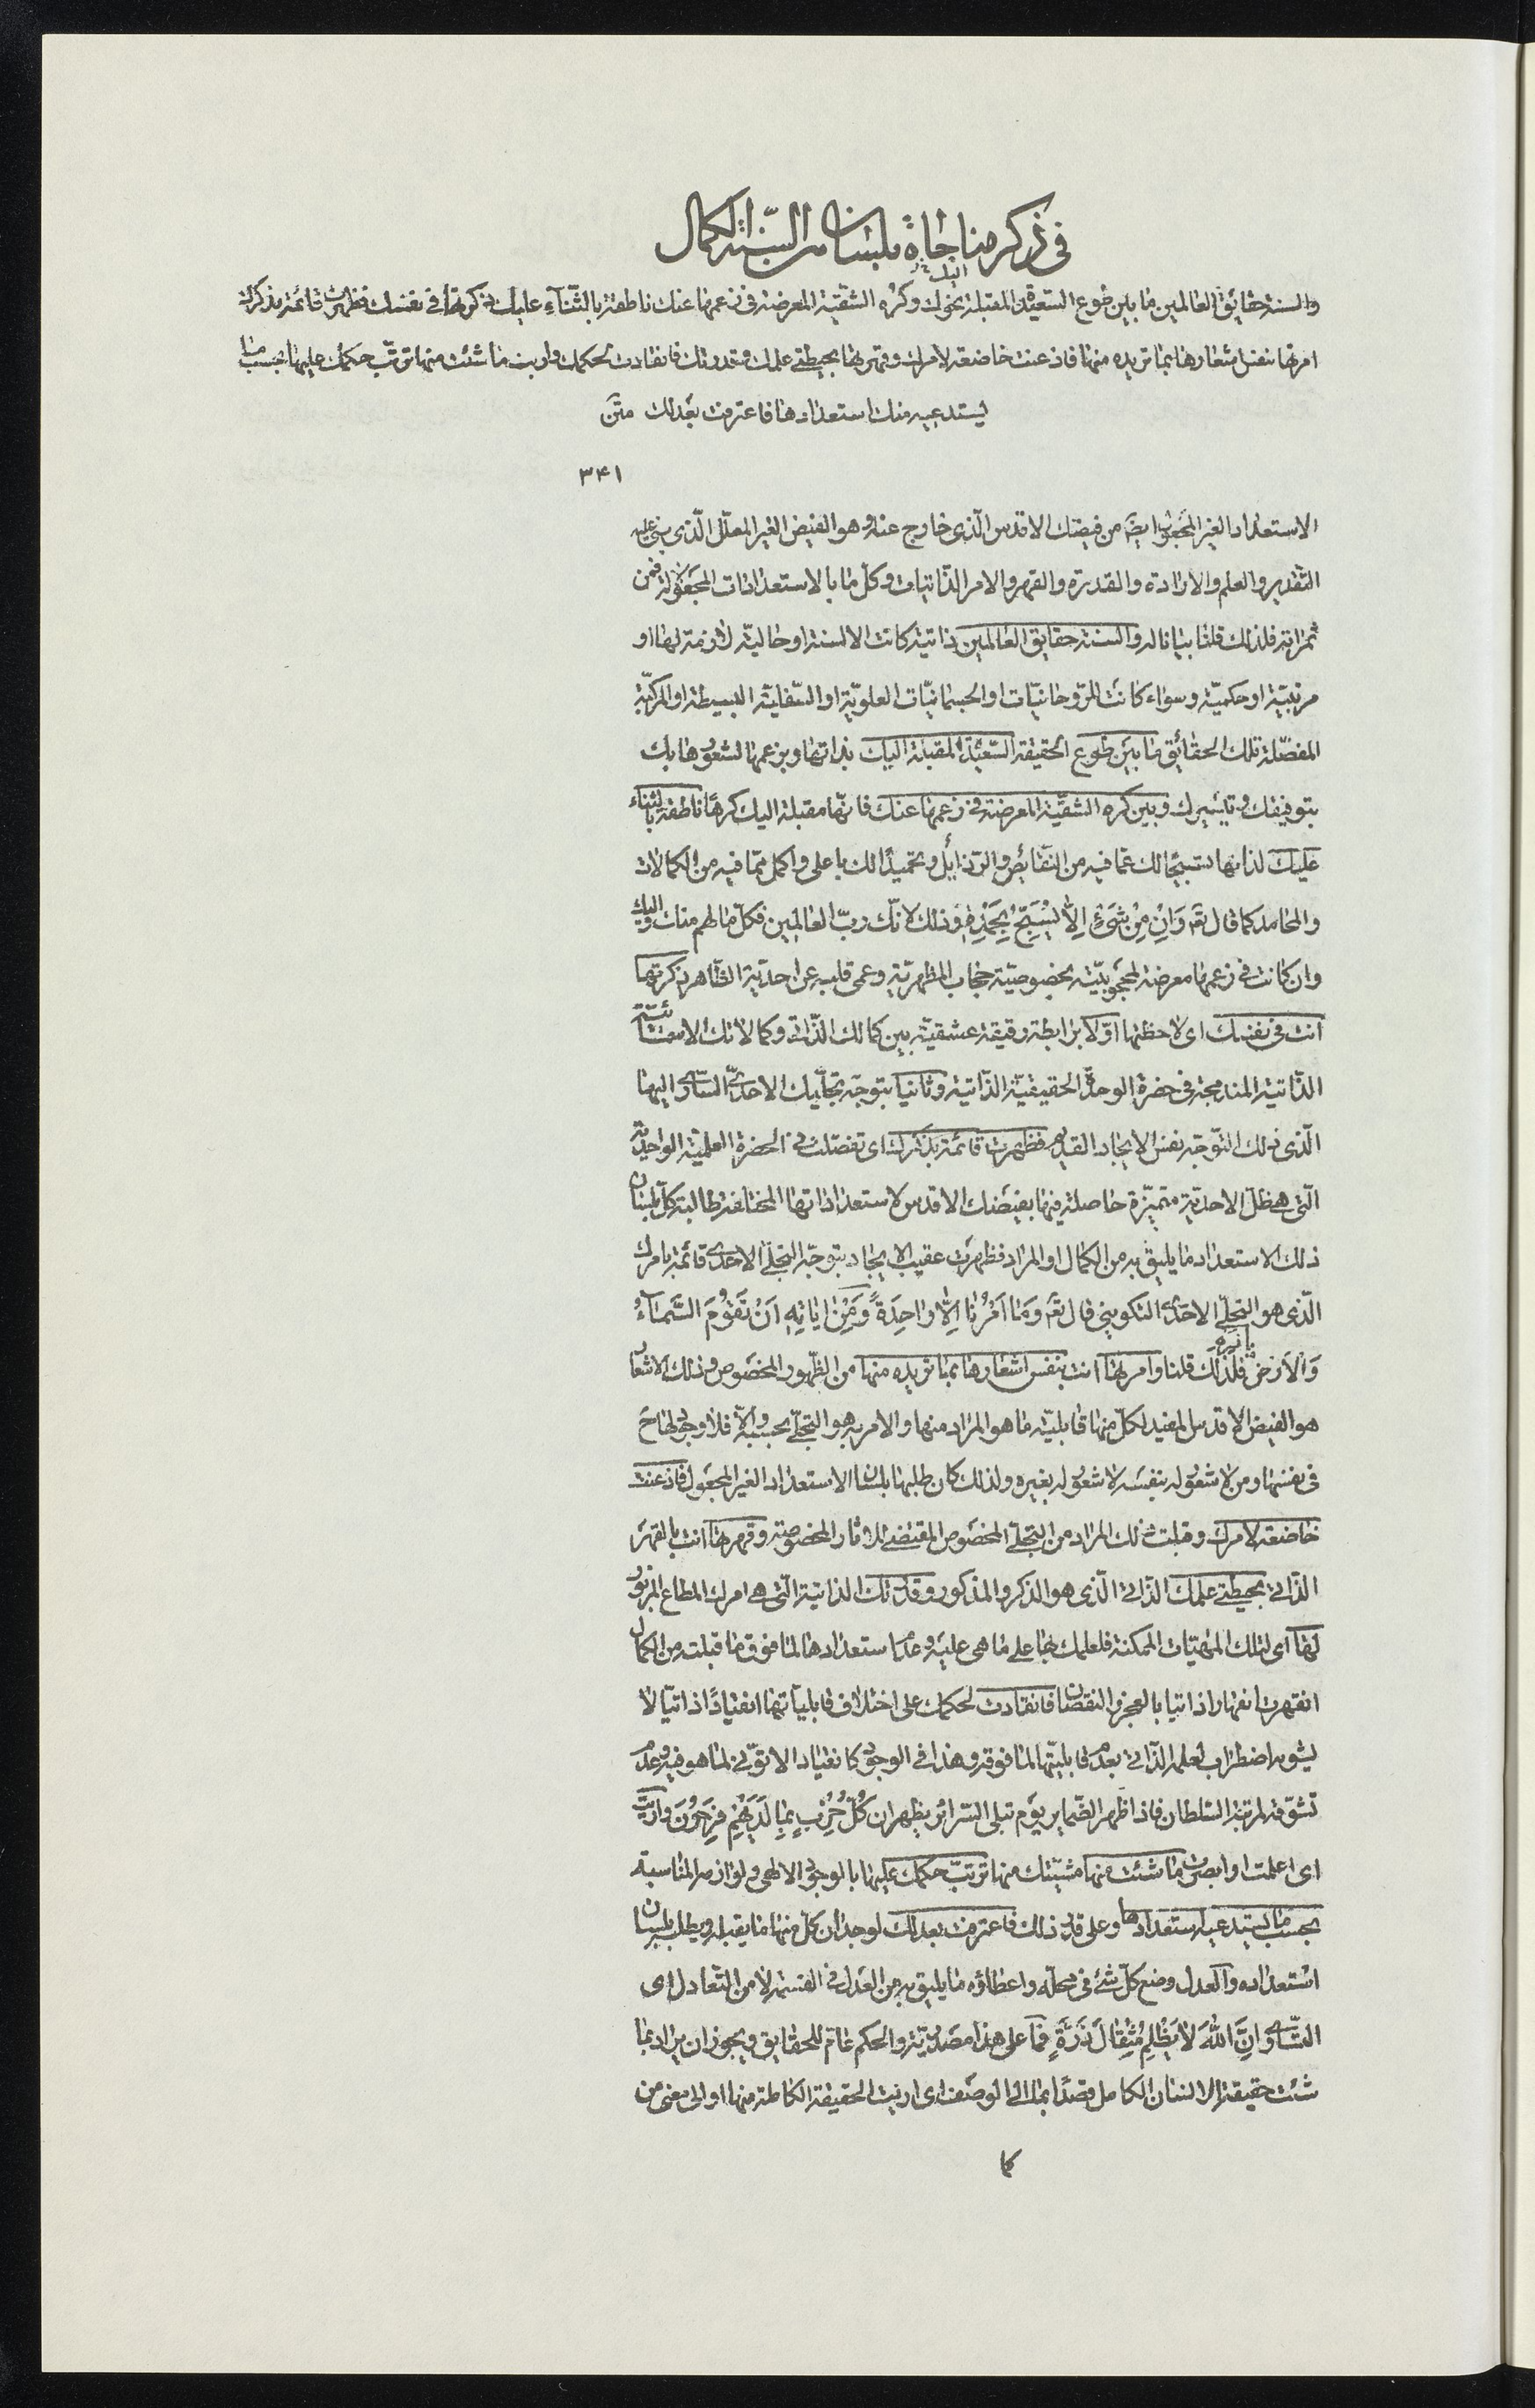 في ذكر مناجاة بلسان من السنة الكمال
والسنة حقائق العالمين ما بين طوع السعيدة المقبلة نحوك وكره الشقية المعرضة في زعمها عنك ناطقة بالثناء عليك ذكرتها في نفسك فظهرت قائمة بذكرك
اليك
امرتها بنفس شعارها بما تريده منها فاذعنت خاضعة لامرك وقهرتها بحيطتي علمك وقدرتك فانقادت لحكمك واريت ما شئت منها ترتب حكمك عليها بحسب ما
يستدعيه منك استعدادها فاعترفت بعدلك متن
٣۴١
الاستعداد الغير المجعول ايض من فيضك الاقدس الّذي خارج عنه وهو الفيض الغير المعلّل الّذي يبنى عليه
التقدير والعلم والارادة والقدرة والقهر والامر الذاتيات وكل ما بالاستعدادات المجعولة فمن
ثمراته فلذلك قلنا بيانا له والسنة حقايق العالمين ذاتية كانت الالسنة او حالية لازمة لها او
مرتبية او حكمية وسواء كانت الروحانيّات او الجسمانيّات العلويّة او السّفليّة البسيطة او المركبة
المفصّلة تلك الحقائق ما بين طوع الحقيقة السّعيدة المقبلة اليك بذاتها وبزعمها لشعورها بك
بتوفيقك وتيسيرك وبين كره الشقيّة المعرضة في زعمها عنك فانّها مقبلة اليك كرهًا ناطقة بالثناء
عليك لذاتها تسبيحًا لك عمّا فيه من النقائص والرذايل وتحميدًا لك باعلى واكمل ممّا فيه من الكمالات
والمحامد كما قال تعه وَاِنْ مِنْ شَيْءٍ اِلّا يُسَبِّحُ بِحَمْدِهِ وذلك لانّك ربّ العالمين فكلّ ما لهم منك واليك
وان كانت في زعمها معرضة لمحجوبيّته بخصوصيّة حجاب المظهريّة وعمى قلبه عن احديّة الظاهر ذكرتها
انت في نفسك اي لاحظتها اوّلا برابطة رقيقة عشقيّة بين كمالك الذّاتي وكمالاتك الاسمائيّة
الذّاتية المندمجة في حضرة الوحدة الحقيقيّة الذّاتية وثانيا بتوجّه تجلّيك الاحديّ السّاري اليها
الّذي ذلك التوجّه نفس الايجاد القديم فظهرت قائمة بذكرك اي تفصّلت في الحضرة العلميّة الواحديّة
الّتي هي ظلّ الاحديّة متميّزة حاصلة فيها بفيضك الاقدس لاستعداداتها المختلفة طالبة كلّ بلسان
ذلك الاستعداد ما يليق به من الكمال او المراد فظهرت عقيب الايجاد بتوجّه التجلّي الاحدي قائمة بامرك
الّذي هو التجلّي الاحديّ التكويني قال تعه وَمَا اَمْرُنَا اِلّا وَاحِدَةً وَمِنْ اٰيَاتِهِ اَنْ تَقُومَ السَّمَاءُ
بامره
وَالْاَرْضُ فلذلك قلنا وامرتها انت بنفس اشعارها بما تريده منها من الظّهور المخصوص وذلك الاشعار
هو الفيض الاقدس المفيد لكلّ منها قابليّة ما هو المراد منها والامر به هو التجلّي بحسبه والّا فلا وجود لها ح
في نفسها ومن لا شعور له بنفسه لا شعور له بغيره ولذلك كان طلبها بلسان الاستعداد الغير المجعول فاذعنت
خاضعة لامرك وقبلت ذلك المراد من التجلّي المخصوص المقتضي للاثار المخصوصة وقهرتها انت بالقهر
الذّاتي بحيطتي علمك الذّاتي الّذي هو الذكر والمذكور وقدرتك الذاتية الّتي هي امرك المطاع المزبور
لها اي لتلك المهيّات الممكنة فلعلمك بها على ما هي عليه وعدم استعدادها لما فوق ما قبلته من الكمال
انقهرت انقهارا ذاتيا بالعجز والنقصان فانقادت لحكمك على اختلاف قابليّاتها انقيادًا ذاتيّا لا
يشوبه اضطراب لعلمه الذّاتي بعدم قابليّتها لما فوقه وهذا في الوجود كانقياد الاتوني لما هو فيه وعدم
تشوّقه لمرتبة السّلطان فاذا ظهر الضماير يوم تبلى السّرائر يظهر ان كُلُّ حِزْبٍ بِمَا لَدَيْهِمْ فَرِحُونَ واريت
اي اعلمت او ابصرت ما شئت منها مشيّتك منها ترتّب حكمك عليها بالوجود الالهي ولوازمه المناسبة
بحسب ما يستدعيه استعدادها وعلى قدر ذلك فاعترفت بعدلك لوجدان كلّ منها ما يقبله ويطلب بلسان
استعداده والعدل وضع كلّ شيء في محلّه واعطاؤه ما يليق به من العدل في القسمة لا من التّعادل اي
التّساوي وَاِنَّ اللّٰهَ لَا يَظْلِمُ مِثْقَالَ ذَرَّةٍ فما على هذا مصدريّة والحكم عامّ للحقايق ويجوز ان يراد بما
شئت حقيقة الانسان الكامل قصدًا بما الى الوصف اي اريت الحقيقة الكاملة منها او الى معنى من
كما